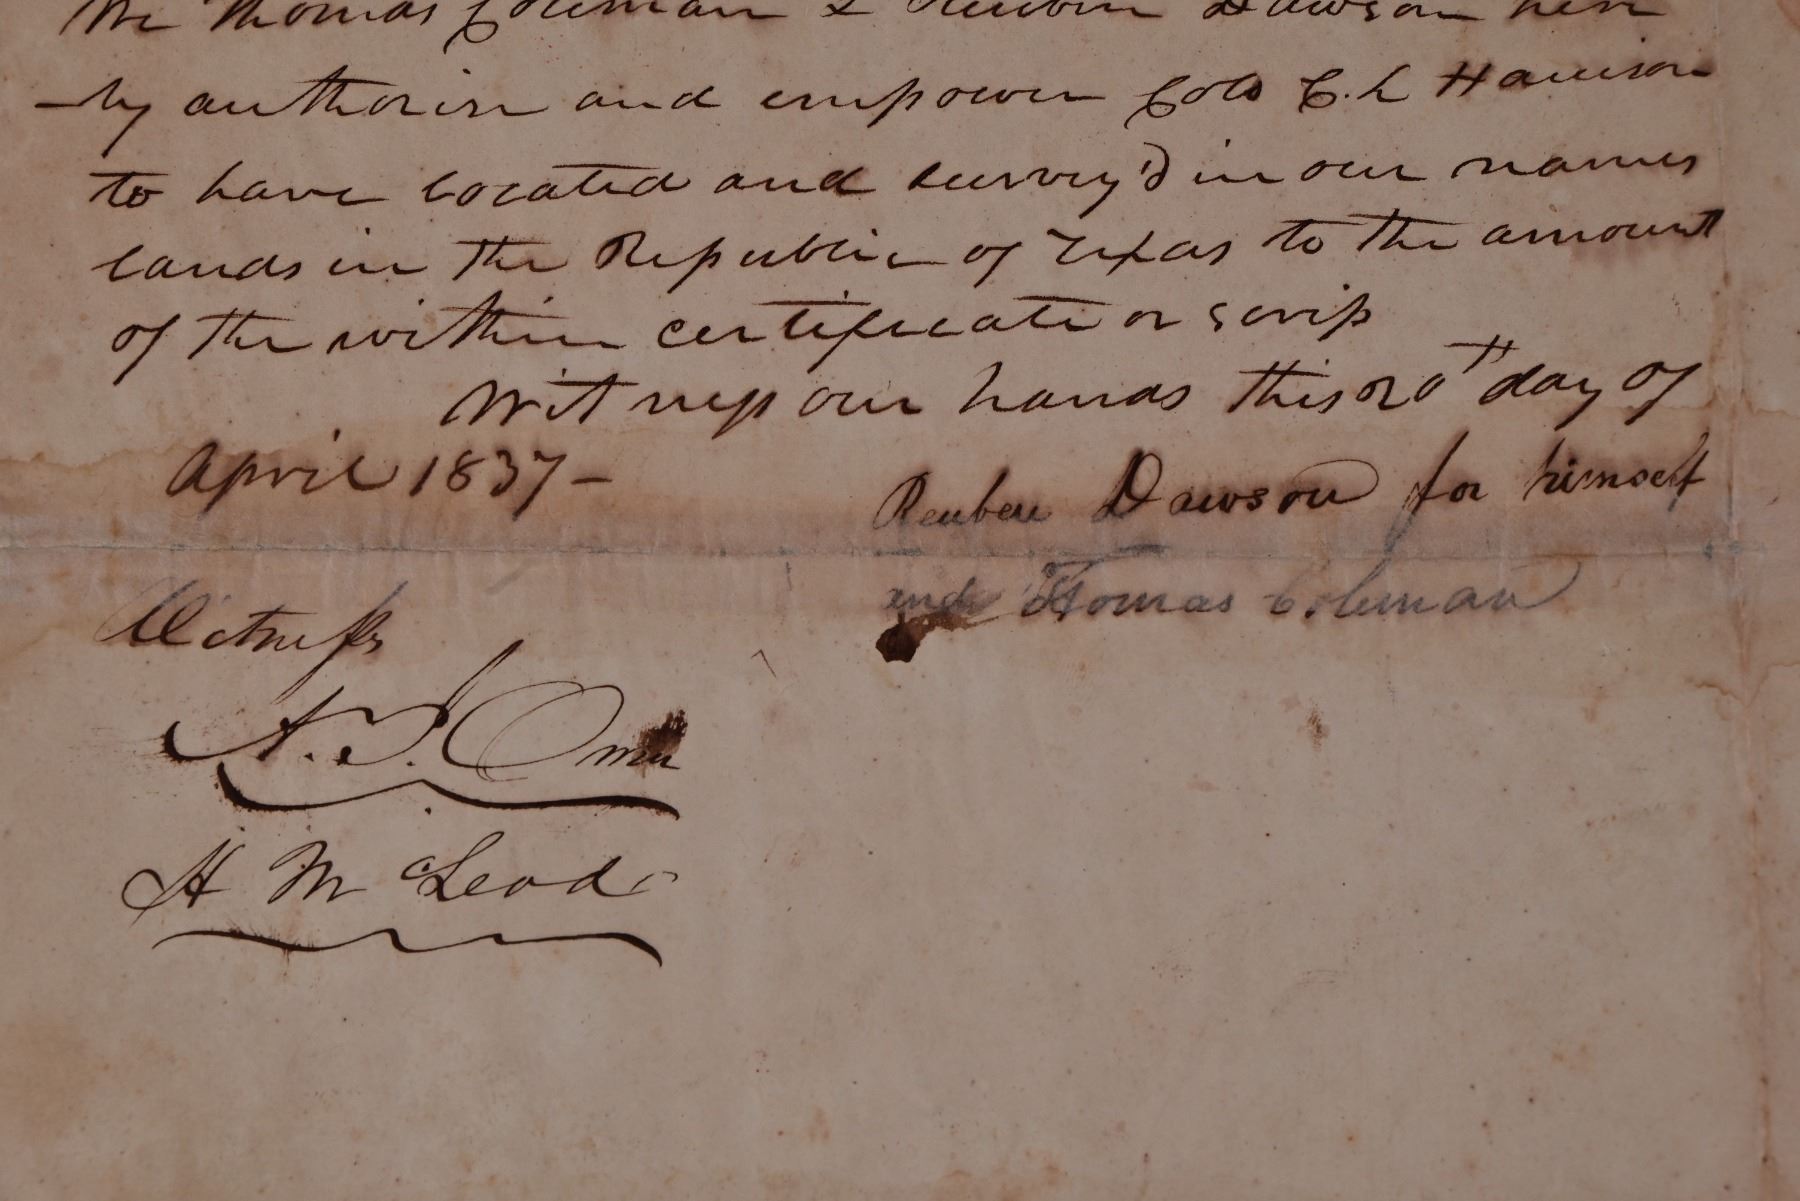 We Thomas Coleman & Reuben Dawson here
-by authorise and empower Colo C. L Harrison
to have located and survey'd in our names
lands in the Republic of Texas to the amount
of the within certificate or scrip
Witness our hands this 20th day of
April 1837-
Reuben Dawson for himself
and Thomas Coleman
Witness
A. J.
H McLeod